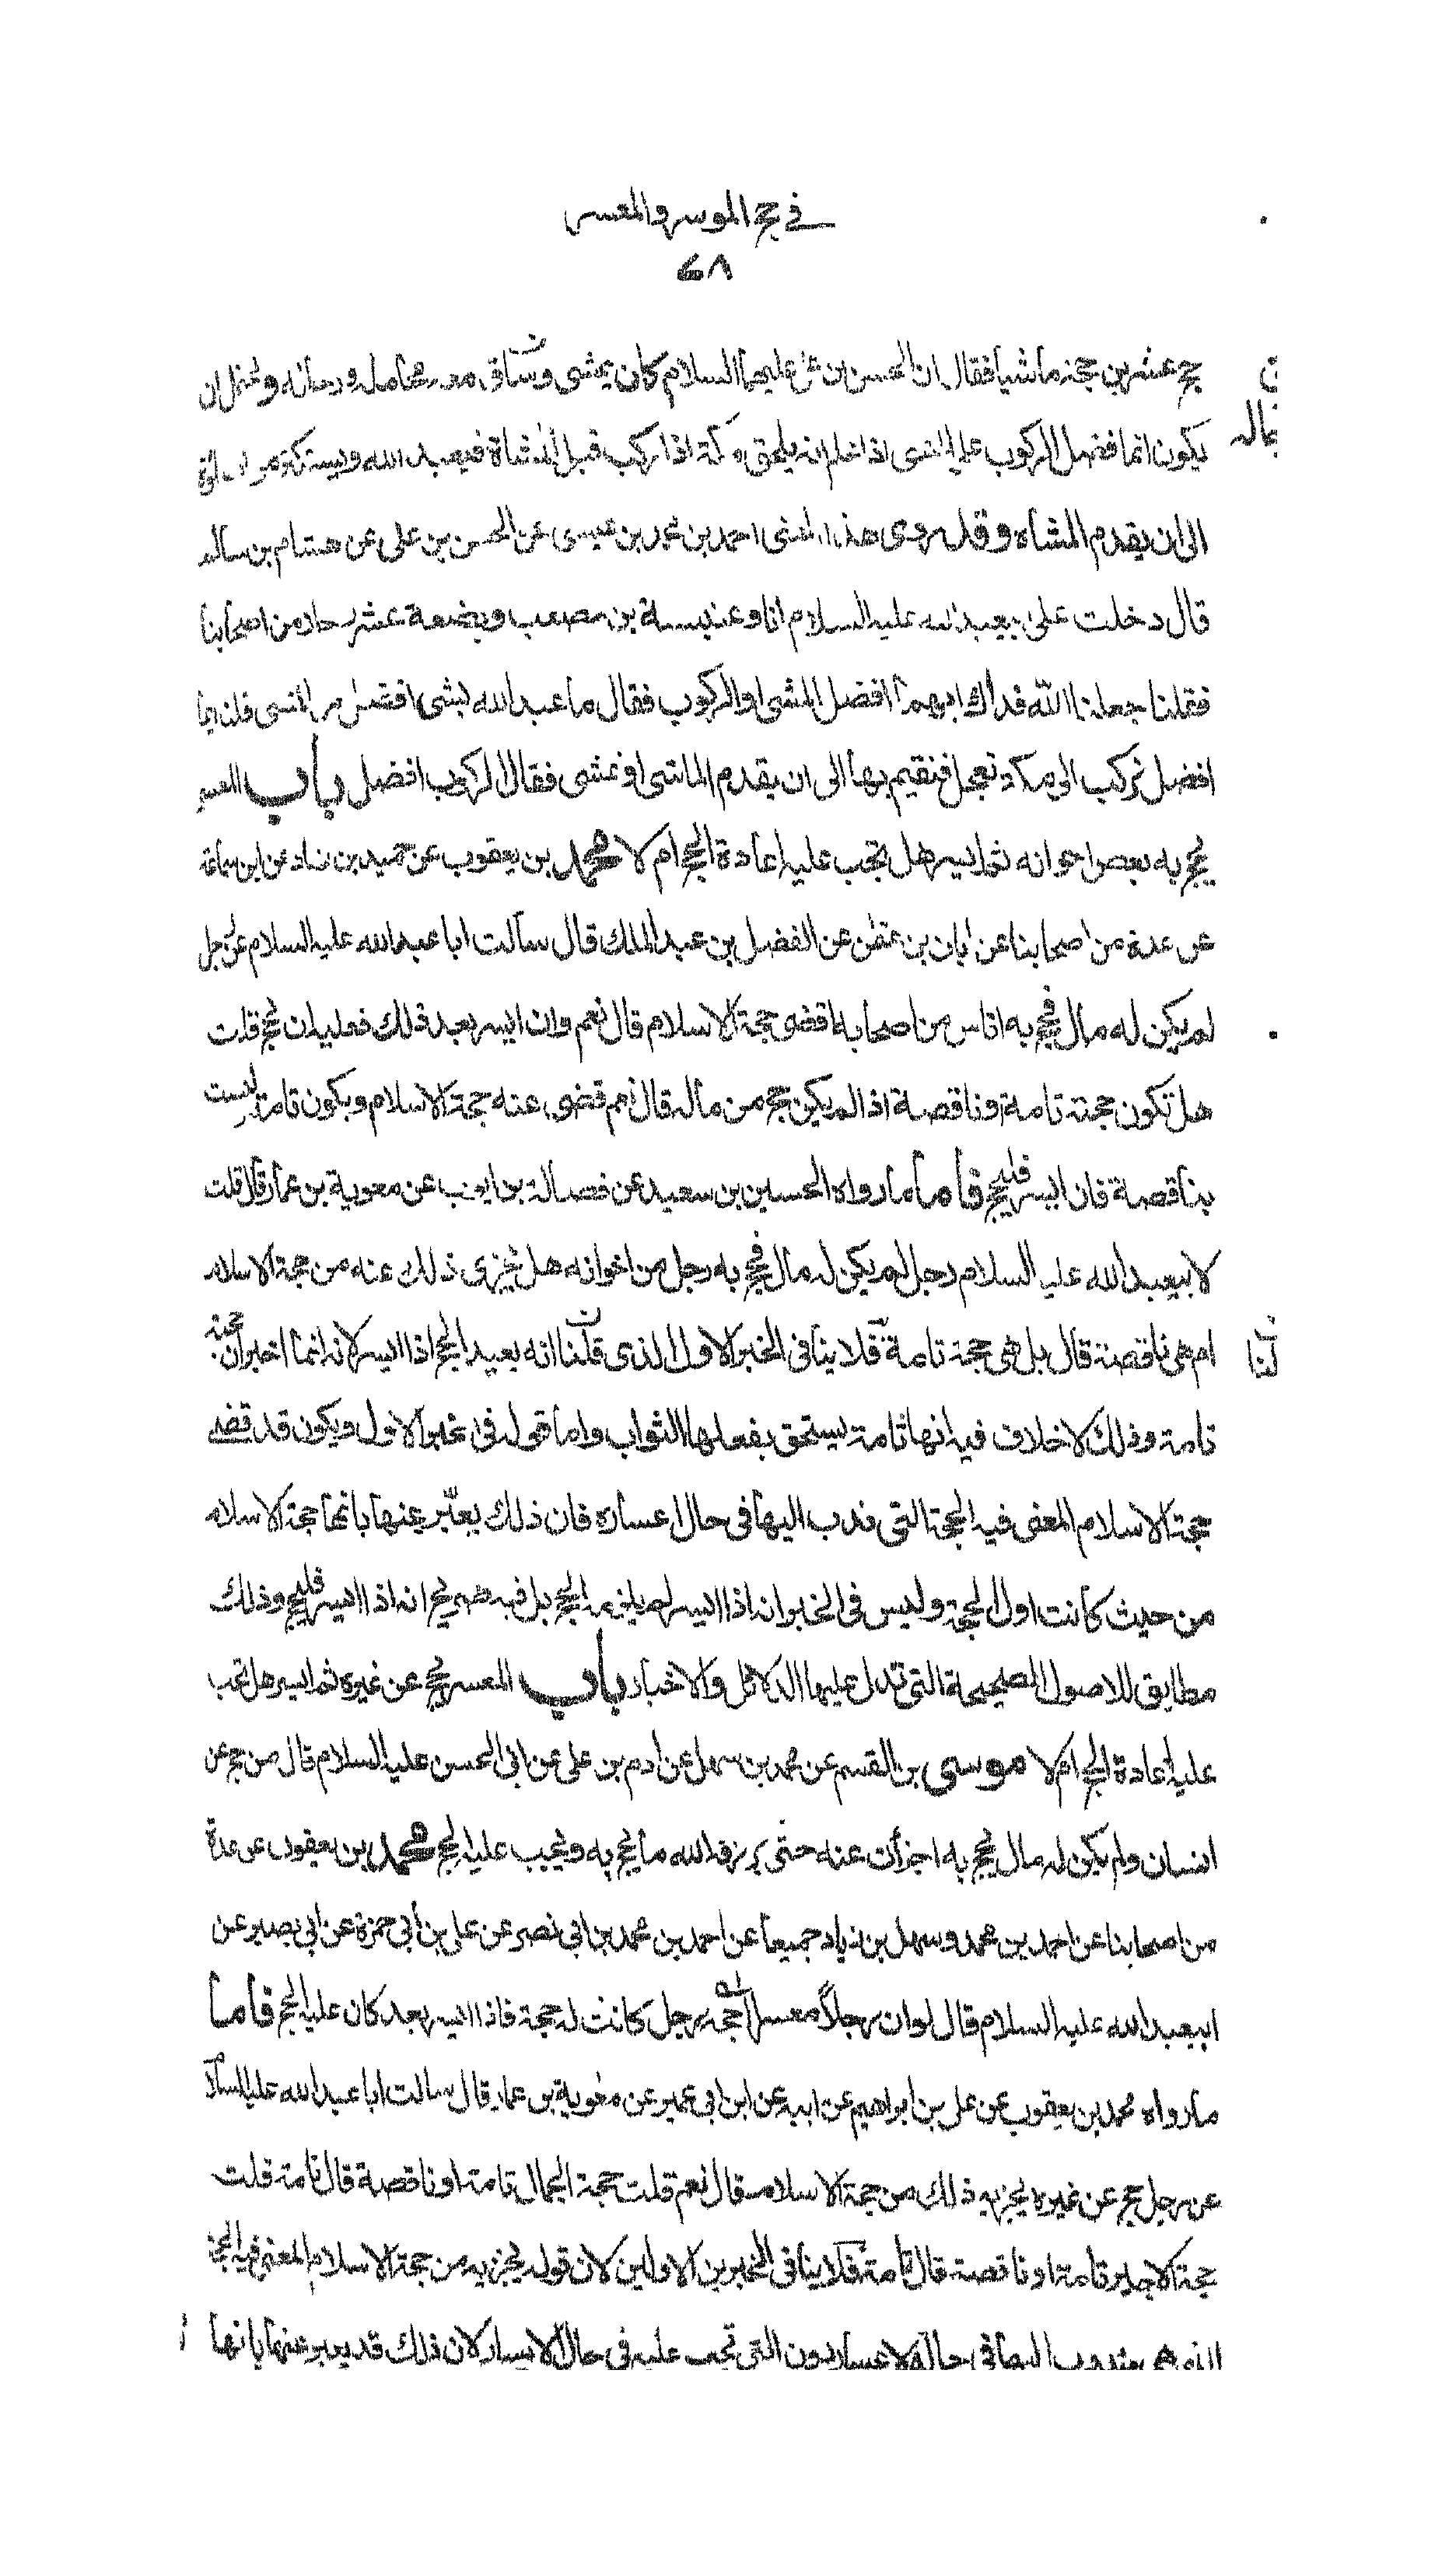 في حج الموسر والمعسر
٦٨
حج عشرين حجة ماشيا فقال ان الحسن بن علي عليهما السلام كان يمشي وتساق معه محامله ورحاله ويحتمل ان
يكون انما فضل الركوب على المشي اذا علم انه يلحق مكة اذا ركب قبل المشاة فيعبد الله ويستكثر من الصلوة
الى ان يقدم المشاه وقد روى هذا المعنى احمد بن محمد بن عيسى عن الحسن بن على عن هشام بن سالم
قال دخلت على ابيعبد الله عليه السلام انا وعنبسة بن مصعب وبضعة عشر رجلا من اصحابنا
فقلنا جعلنا الله فداك ايهما افضل المشي او الركوب فقال ما عبد الله بشئ افضل من المشي فقلنا ايما
افضل نركب الى مكة نعجل فنقيم بها الى ان يقدم الماشي او نمشي فقال الركوب افضل باب المعسر
يحج به بعض اخوانه ثم ايسر هل تجب عليه اعادة الحج ام لا محمد بن يعقوب عن حميد بن زياد عن ابن سماعة
عن عدة من اصحابنا عن ابان بن عثمن عن الفضل بن عبد الملك قال سألت ابا عبد الله عليه السلام عن رجل
لم يكن له مال فحج به اناس من اصحابه اقضى حجة الاسلام قال نعم وان ايسر بعد ذلك فعليه ان يحج قلت
هل تكون حجته تامة او ناقصة اذا لم يكن حج من ماله قال نعم قضى عنه حجة الاسلام ويكون تامة ليست
بناقصة فان ايسر فليحج فاما ما رواه الحسين بن سعيد عن فضالة بن ايوب عن معوية بن عمار قال قلت
لابيعبد الله عليه السلام رجل لم يكن له مال فحج به رجل من اخوانه هل يجزي ذلك عنه من حجة الاسلام
ام هي ناقصة قال بل هي حجة تامة فلا ينافي الخبر الاول الذي قلنا انه يعيد الحج اذا ايسر لانه انما اخبر ان حجته
تامة وذلك لا خلاف فيه انها تامة يستحق بفعلها الثواب واما قوله في الخبر الاول ويكون قد قضى
حجة الاسلام المعنى فيه الحجة التي ندب اليها في حال اعساره فان ذلك يعبّر عنها بانها حجة الاسلام
من حيث كانت اول الحجة وليس في الخبر انه اذا ايسر لم يلزمه الحج بل فيه تصريح انه اذا ايسر فليحج وذلك
مطابق للاصول الصحيحة التي تدل عليها الدلائل والاخبار باب المعسر يحج عن غيره ثم ايسر هل تجب
عليه اعادة الحج ام لا موسى بن القسم عن محمد بن سهل عن ادم بن على عن ابي الحسن عليه السلام قال من حج عن
انسان ولم يكن له مال يحج به اجزأت عنه حتى يرزقه الله ما يحج به ويجب عليه الحج محمد بن يعقوب عن عدة
من اصحابنا عن احمد بن محمد وسهل بن زياد جميعا عن احمد بن محمد بن ابي نصر عن علي بن أبي حمزة عن ابي بصير عن
ابيعبد الله عليه السلام قال لو ان رجلاً معسرا احجه رجل كانت له حجة فاذا ايسر بعد كان عليه الحج فاما
ما رواه محمد بن يعقوب عن على بن ابراهيم عن ابيه عن ابن ابي عمير عن معوية بن عمار قال سالت ابا عبد الله عليه السلام
عن رجل حج عن غيره يجزيه ذلك من حجة الاسلام قال نعم قلت حجة الجمال تامة او ناقصة قال تامة قلت
حجة الاجير تامة او ناقصة قال تامة فلا ينافي الخبرين الاولين لان قوله يجزيه من حجة الاسلام المعنى فيه الحجة
مندوب اليها في حال الاعسار دون التي تجب عليه في حال الايسار لان ذلك قد يعبر عنها بانها